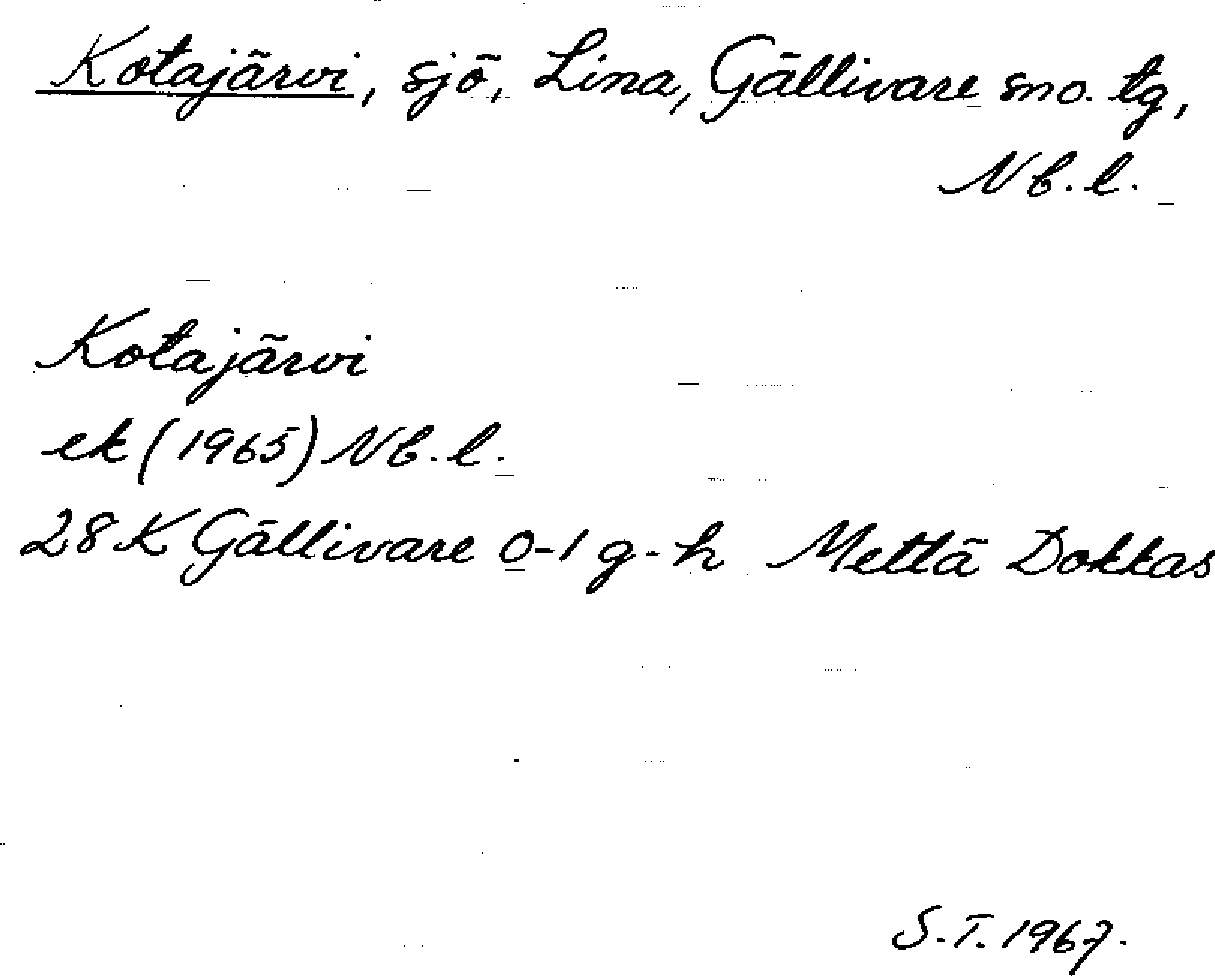 Kotajärvi, sjö, Lina, Gällivare sno. tg,
Nb. l.
Kotajärvi
ek (1965) Nb. l.
28 K Gällivare 0-1 g-h Mettä Dokkas
S.T. 1967.